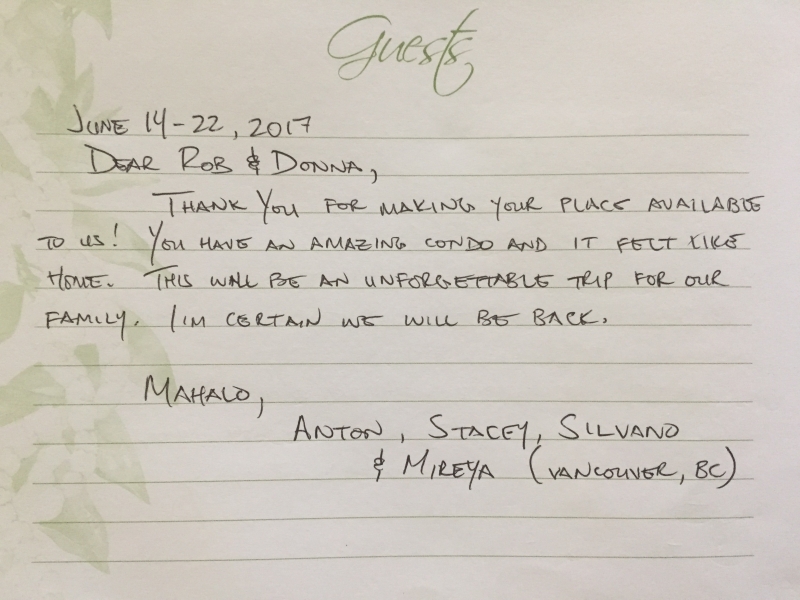 Guests
JUNE 14-22, 2017
DEAR ROB & DONNA,
THANK YOU FOR MAKING YOUR PLACE AVAILABLE
TO US! YOU HAVE AN AMAZING CONDO AND IT FELT LIKE
HOME. THIS WILL BE AN UNFORGETTABLE TRIP FOR OUR
FAMILY. I'M CERTAIN WE WILL BE BACK.
MAHALO,
ANTON, STACEY, SILVANO
& MIREYA (VANCOUVER, BC)